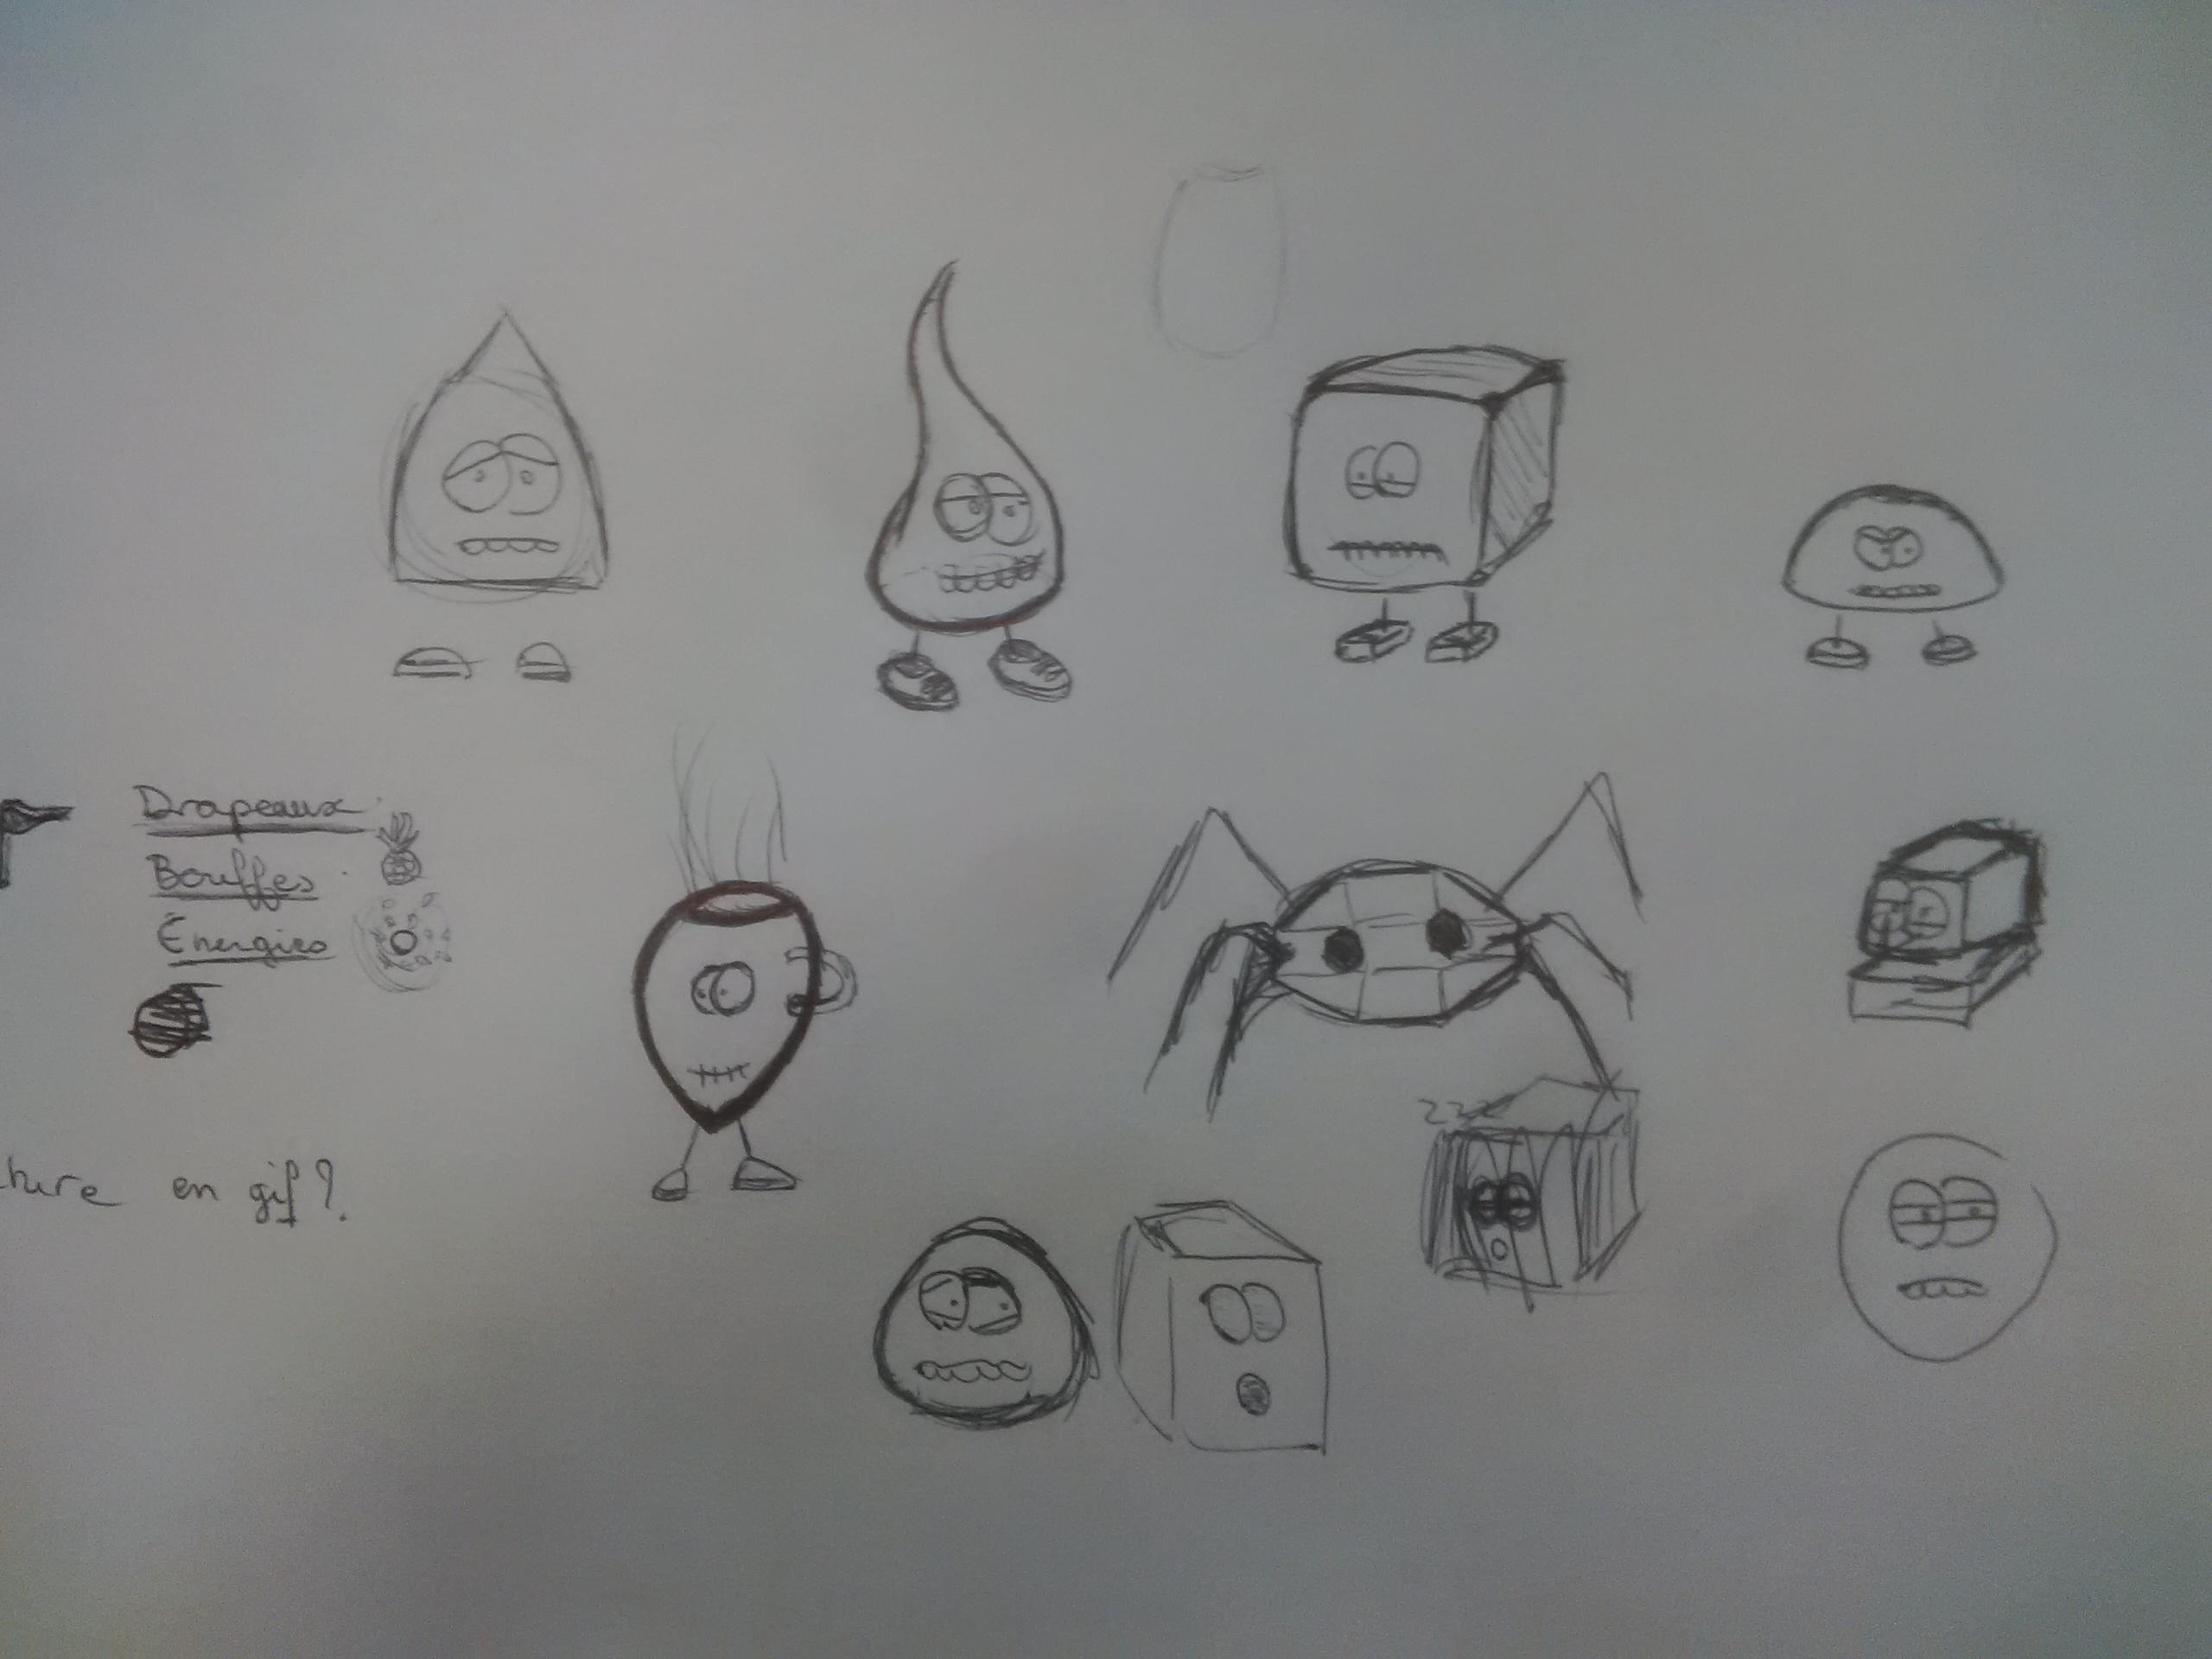 Drapeaux
Bouffes
Énergies
zzz
en gif ?